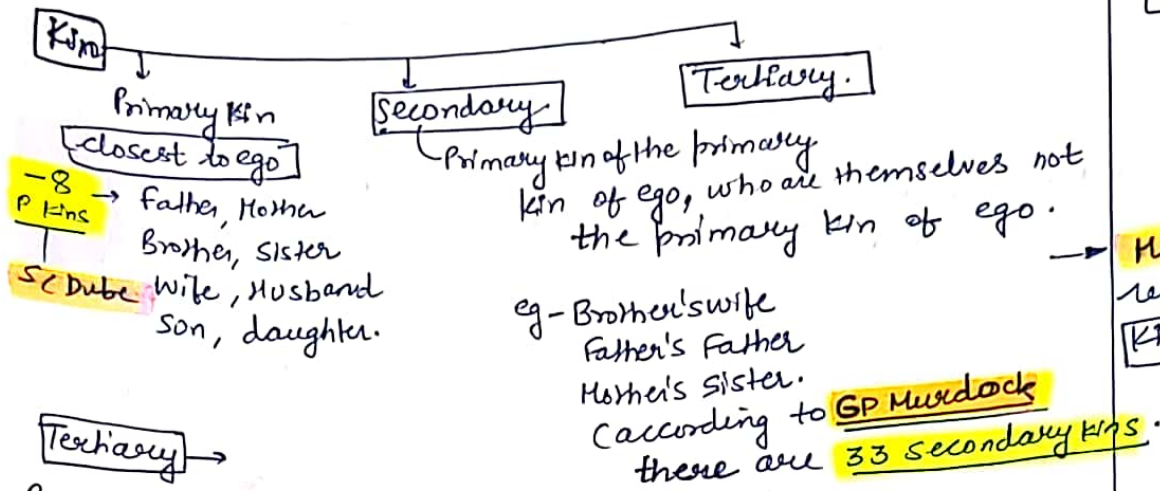 Kin
Primary Kin
closest to ego
-8
P kins
SC Dube
→ Father, Mother
Brother, Sister
Wife, Husband
Son, daughter.
Secondary.
Primary kin of the primary
kin of ego, who are themselves not
the primary kin of ego.
eg - Brother's wife
Father's Father
Mother's Sister.
(according to GP Murdock
there are 33 secondary kins.
Tertiary.
Tertiary →